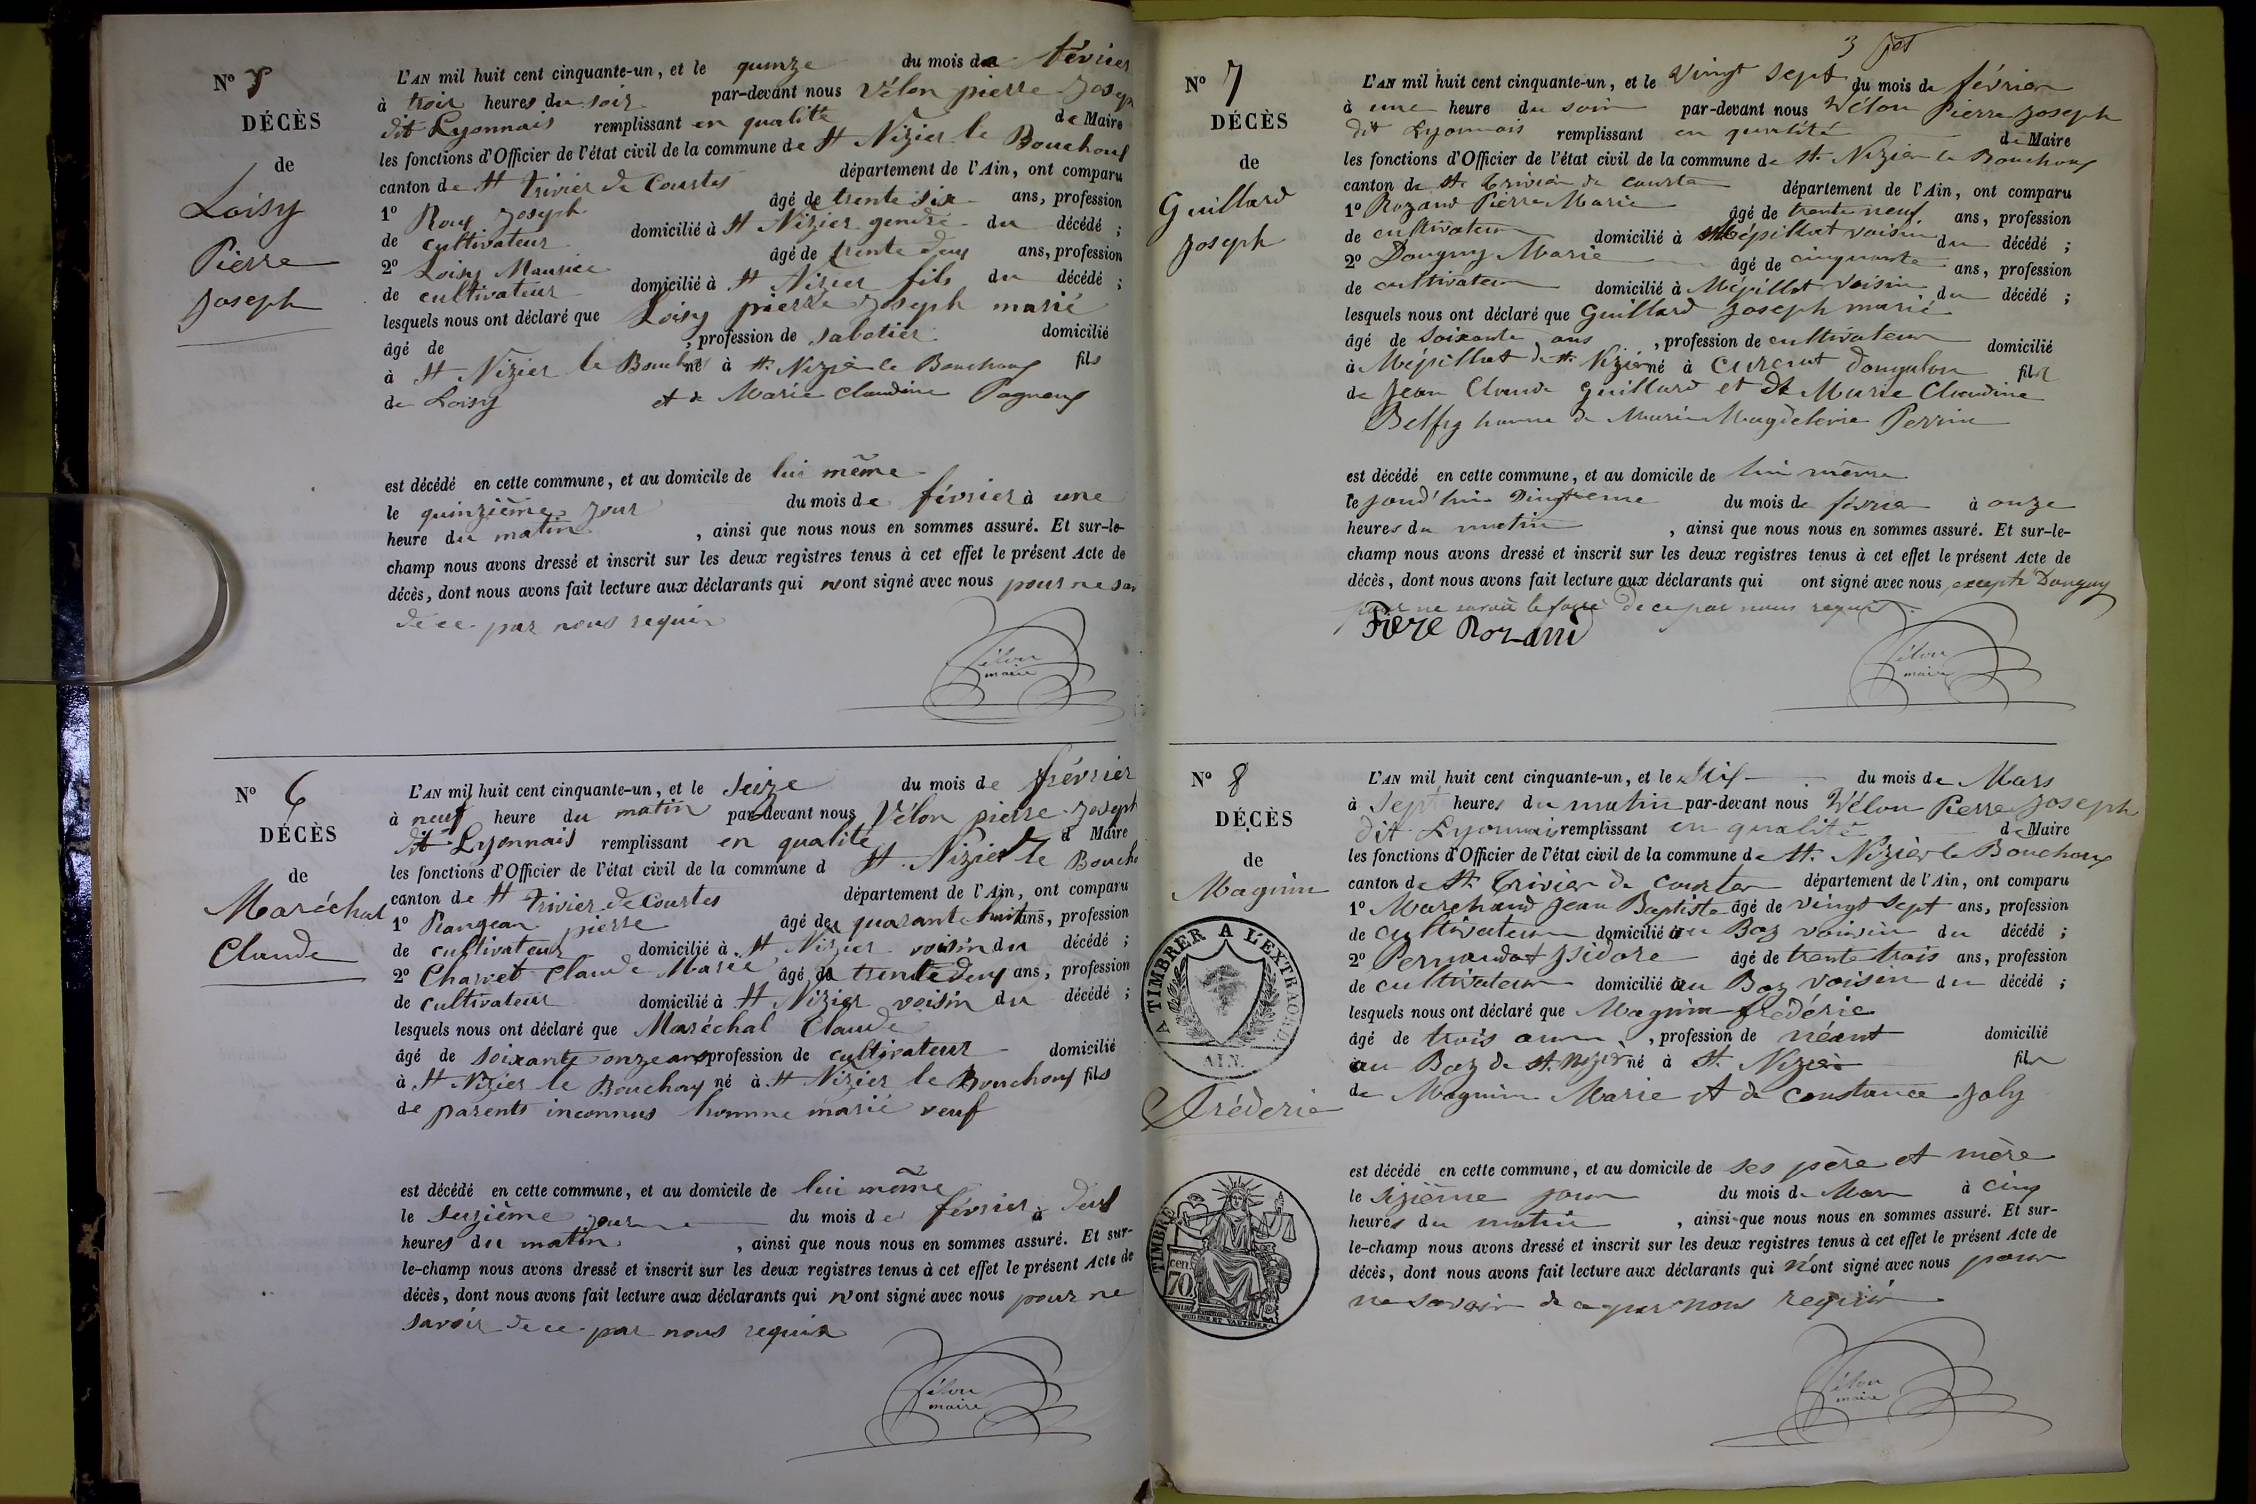 N° 5
DÉCÈS
de
Loisy
Pierre
Joseph
L'AN mil huit cent cinquante-un, et le quinze du mois de février
à trois heures du soir par-devant nous Vélon pierre Joseph
dit Lyonnais remplissant en qualité de Maire
les fonctions d'Officier de l'état civil de la commune de St Nizier le Bouchoux
canton de St trivier de Courtes département de l'Ain, ont comparu
1° Roux Joseph âgé de trente six ans, profession
de cultivateur domicilié à St Nizier gendre du décédé ;
2° Loisy Maurice âgé de trente deux ans, profession
de cultivateur domicilié à St Nizier fils du décédé ;
lesquels nous ont déclaré que Loisy pierre Joseph marié
âgé de , profession de sabotier domicilié
à St Nizier le Bouchoux né à St. Nizier le Bouchoux fils
de Loisy et de Marie Claudine Pagneux
est décédé en cette commune, et au domicile de lui même
le quinzième jour du mois de février à une
heure du matin , ainsi que nous nous en sommes assuré. Et sur-le-
champ nous avons dressé et inscrit sur les deux registres tenus à cet effet le présent Acte de
décès, dont nous avons fait lecture aux déclarants qui n'ont signé avec nous pour ne
de ce par nous requis
Vélon
maire
N° 6
DÉCÈS
de
Maréchal
Claude
L'AN mil huit cent cinquante-un, et le seize du mois de février
à neuf heure du matin par-devant nous Vélon pierre Joseph
dit Lyonnais remplissant en qualité d Maire
les fonctions d'Officier de l'état civil de la commune d St. Nizier le Boucho
canton de St trivier de Courtes département de l'Ain, ont comparu
1° Rangean pierre âgé de quarante huit ans, profession
de cultivateur domicilié à St Nizier voisin du décédé ;
2° Charvet Claude Marie âgé de trente deux ans, profession
de cultivateur domicilié à St Nizier voisin du décédé ;
lesquels nous ont déclaré que Maréchal Claude
âgé de soixante onze ans profession de cultivateur domicilié
à St Nizier le Bouchoux né à St Nizier le Bouchoux fils
de parents inconnus homme marié veuf
est décédé en cette commune, et au domicile de lui même
le seizième jour du mois de février à deux
heures du matin , ainsi que nous nous en sommes assuré. Et sur-
le-champ nous avons dressé et inscrit sur les deux registres tenus à cet effet le présent Acte de
décès, dont nous avons fait lecture aux déclarants qui n'ont signé avec nous pour ne
savoir de ce par nous requis
Vélon
maire
3
N° 7
DÉCÈS
de
Guillard
Joseph
L'AN mil huit cent cinquante-un, et le vingt sept du mois de février
à une heure du soir par-devant nous Vélon Pierre Joseph
dit Lyonnais remplissant en qualité de Maire
les fonctions d'Officier de l'état civil de la commune de St. Nizier le Bouchoux
canton de St. Trivier de Courtes département de l'Ain, ont comparu
1° Rozand Pierre Marie âgé de trente neuf ans, profession
de cultivateur domicilié à Mépillat voisin du décédé ;
2° Donguy Marie âgé de cinquante ans, profession
de cultivateur domicilié à Mépillat voisin du décédé ;
lesquels nous ont déclaré que Guillard Joseph marié
âgé de soixante ans , profession de cultivateur domicilié
à Mépillat de St. Nizier né à Curciat Dongalon fils
de Jean Claude Guillard et de Marie Claudine
homme de Marie Magdeleine Perrin
est décédé en cette commune, et au domicile de lui même
le jourd'hui du mois de février à onze
heures du matin , ainsi que nous nous en sommes assuré. Et sur-le-
champ nous avons dressé et inscrit sur les deux registres tenus à cet effet le présent Acte de
décès, dont nous avons fait lecture aux déclarants qui ont signé avec nous excepté Donguy
pour ne savoir le faire de ce par nous requis
Rozand
Vélon
maire
N° 8
DÉCÈS
de
Magnin
A TIMBRER A L'EXTRAORD.
AIN.
Fréderic
TIMBRE
70 cent
L'AN mil huit cent cinquante-un, et le Six du mois de Mars
à Sept heures du matin par-devant nous Vélon Pierre Joseph
dit Lyonnais remplissant en qualité de Maire
les fonctions d'Officier de l'état civil de la commune de St. Nizier le Bouchoux
canton de St Trivier de Courtes département de l'Ain, ont comparu
1° Marchand Jean Baptiste âgé de vingt sept ans, profession
de cultivateur domicilié au Boz voisin du décédé ;
2° Pernaudat Isidore âgé de trente trois ans, profession
de cultivateur domicilié au Boz voisin du décédé ;
lesquels nous ont déclaré que Magnin fréderic
âgé de trois ans , profession de néant domicilié
au Boz de St. Nizier né à St. Nizier fils
de Magnin Marie et de Constance Joly
est décédé en cette commune, et au domicile de ses père et mère
le sizième jour du mois de Mars à cinq
heures du matin , ainsi que nous nous en sommes assuré. Et sur-
le-champ nous avons dressé et inscrit sur les deux registres tenus à cet effet le présent Acte de
décès, dont nous avons fait lecture aux déclarants qui n'ont signé avec nous pour
ne savoir de ce par nous requis
Vélon
maire